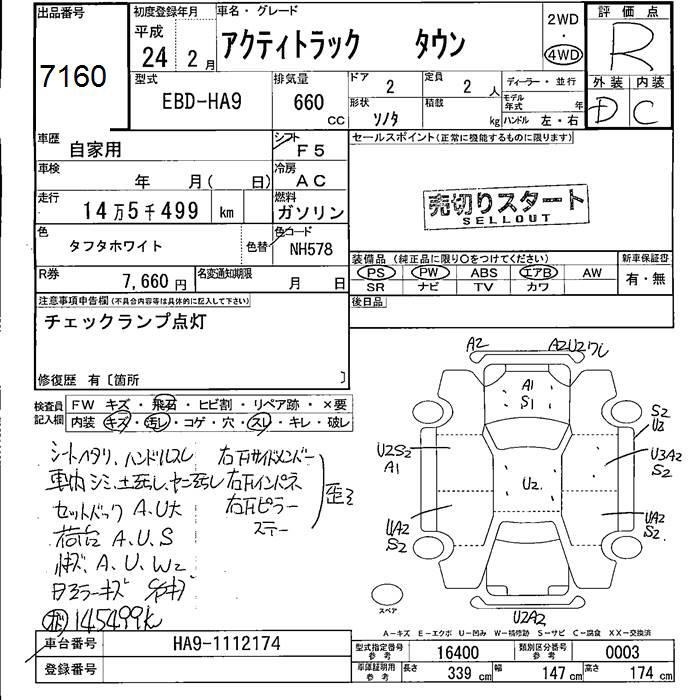 出品番号
7160
初度登録年月
平成
24年 2月
車名・グレード
アクティトラック タウン
2WD
・
4WD
評価点
R
外装 内装
D C
型式
EBD-HA9
排気量
660
CC
ドア
2
定員
2人
形状
ソノタ
積載
kg
ディーラー・並行
モデル年式 年
ハンドル 左・右
車歴
自家用
シフト
F5
車検
年 月( 日)
冷房
AC
走行
14万5千499 km
燃料
ガソリン
色
タフタホワイト
色替
色コード
NH578
R券
7,660円
名変通知期限
月 日
セールスポイント(正常に機能するものに限ります)
売切りスタート
SELLOUT
装備品(純正品に限り○をつけてください)
PS PW ABS エアB AW
SR ナビ TV カワ
新車保証書
有・無
後日品
注意事項申告欄(不具合内容等は具体的に記入して下さい)
チェックランプ点灯
修復歴 有〔箇所 〕
検査員記入欄
FW キズ・飛石・ヒビ割・リペア跡・×要
内装 キズ・汚し・コゲ・穴・スレ・キレ・破レ
シートヘタリ、ハンドルスレ
車内シミ、土汚し、ヤニ汚し
セットバック A.U大
荷台 A.U.S
A.U.W2
145499K
右サイドメンバー
右インパネ
右ピラー
ステー
A2
A2U2ワレ
A1
S1
S2
U2
U2S2
A1
U3A2
S2
U2
UA2
S2
UA2
S2
U2A2
スペア
A-キズ E-エクボ U-凹み W-補修跡 S-サビ C-腐食 XX-交換済
車台番号
HA9-1112174
登録番号
型式指定番号
参考
16400
類別区分番号
参考
0003
車庫証明用
参考
長さ 339cm
幅 147cm
高さ 174cm